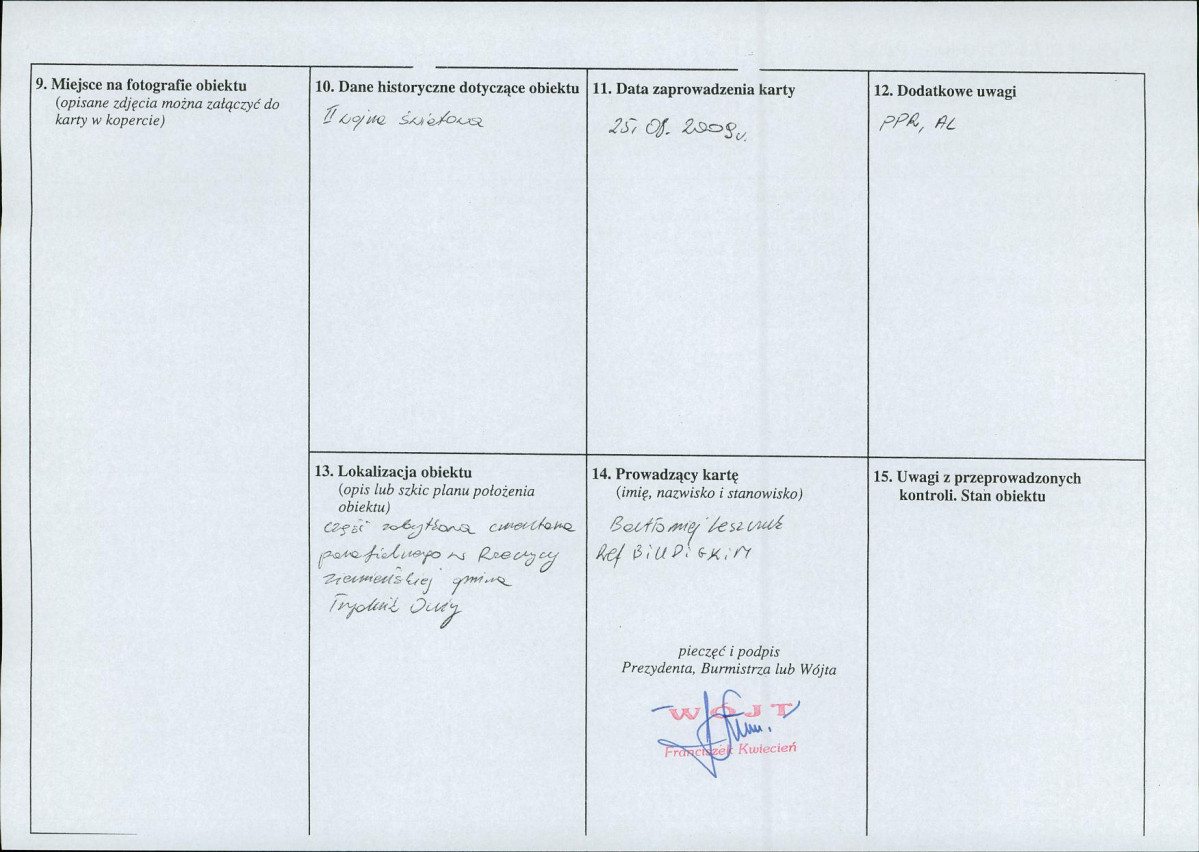 9. Miejsce na fotografie obiektu
(opisane zdjęcia można załączyć do
karty w kopercie)
10. Dane historyczne dotyczące obiektu
II wojna światowa
11. Data zaprowadzenia karty
25. 08. 2009 r.
12. Dodatkowe uwagi
PPR, AL
13. Lokalizacja obiektu
(opis lub szkic planu położenia
obiektu)
część zabytkowa cmentarza
parafialnego w Rzeczycy
ziemiańskiej gmina
Trzydnik Duży
14. Prowadzący kartę
(imię, nazwisko i stanowisko)
Bartłomiej Leszczuk
Ref
pieczęć i podpis
Prezydenta, Burmistrza lub Wójta
WÓJT
Franciszek Kwiecień
15. Uwagi z przeprowadzonych
kontroli. Stan obiektu